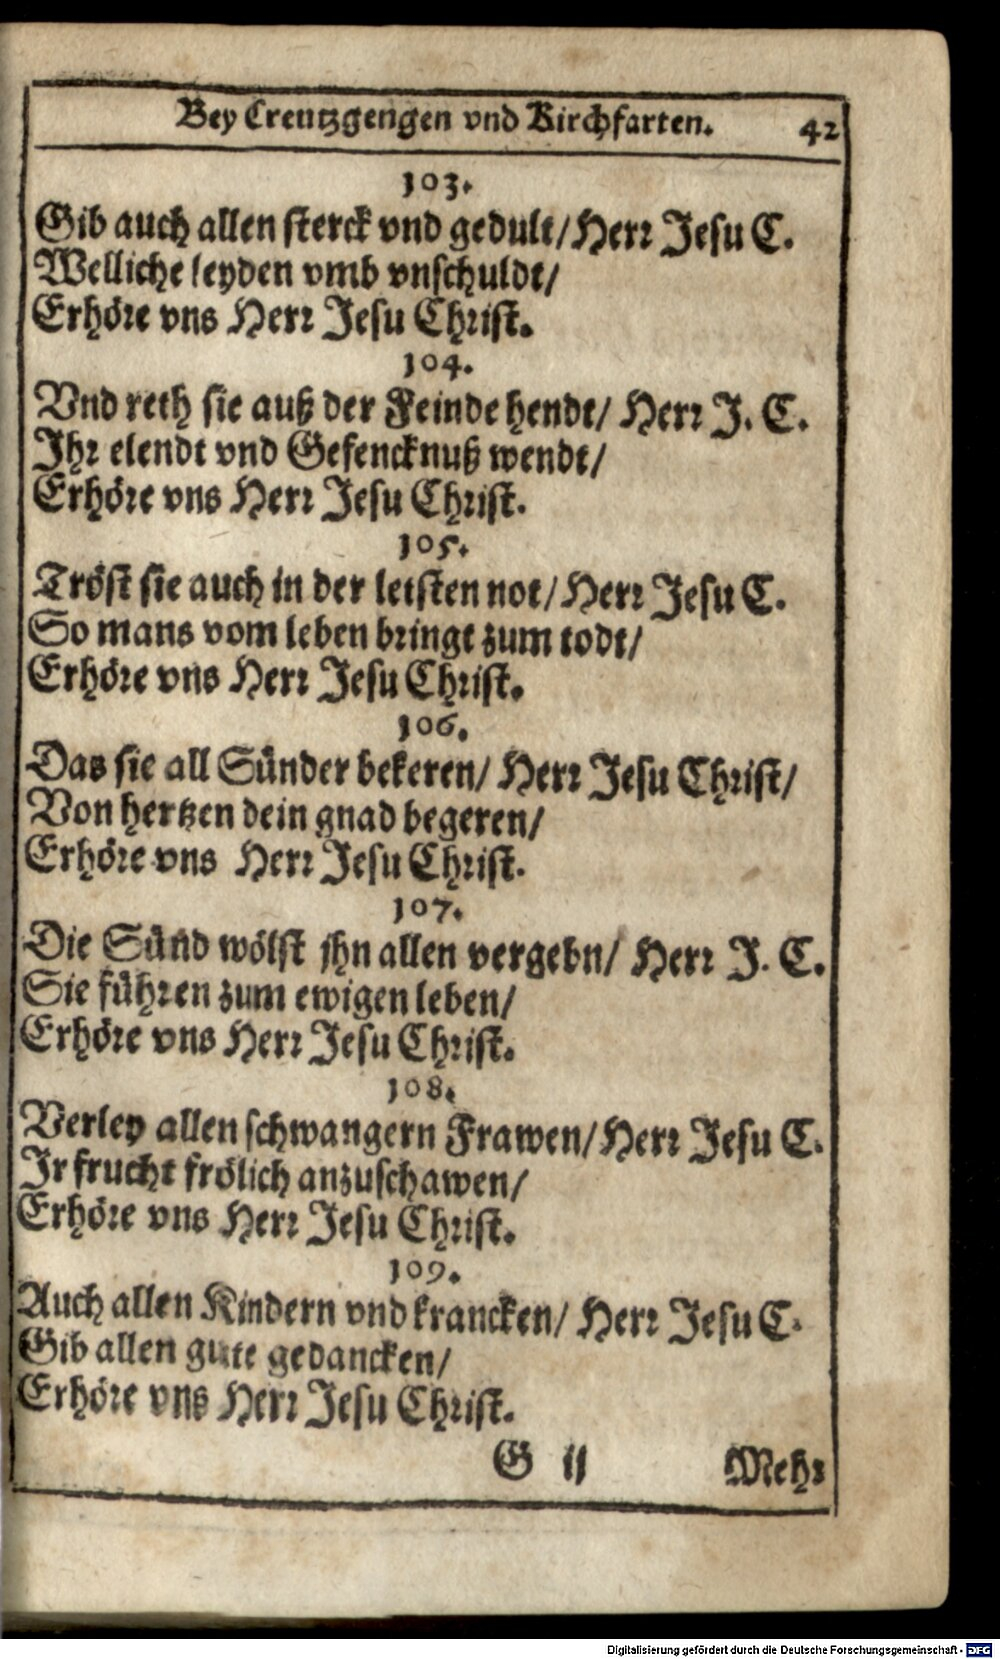 Bey Creutzgengen vnd Kirchfarten. 42
103.
Gib auch allen sterck vnd gedult/ Herr Jesu C.
Welliche leyden vmb vnschuldt/
Erhöre vns Herr Jesu Christ.
104.
Vnd reth sie auß der Feinde hendt/ Herr J. C.
Jhr elendt vnd Gefencknuß wendt/
Erhöre vns Herr Jesu Christ.
105.
Tröst sie auch in der letsten not/ Herr Jesu C.
So mans vom leben bringt zum todt/
Erhöre vns Herr Jesu Christ.
106.
Das sie all Sünder bekeren/ Herr Jesu Christ/
Von hertzen dein gnad begeren/
Erhöre vns Herr Jesu Christ.
107.
Die Sünd wölst jhn allen vergebn/ Herr J. C.
Sie führen zum ewigen leben/
Erhöre vns Herr Jesu Christ.
108.
Verley allen schwangern Frawen/ Herr Jesu C.
Jr frucht frölich anzuschawen/
Erhöre vns Herr Jesu Christ.
109.
Auch allen Kindern vnd krancken/ Herr Jesu C.
Gib allen gute gedancken/
Erhöre vns Herr Jesu Christ.
G ij Mehr
Digitalisierung gefördert durch die Deutsche Forschungsgemeinschaft - DFG